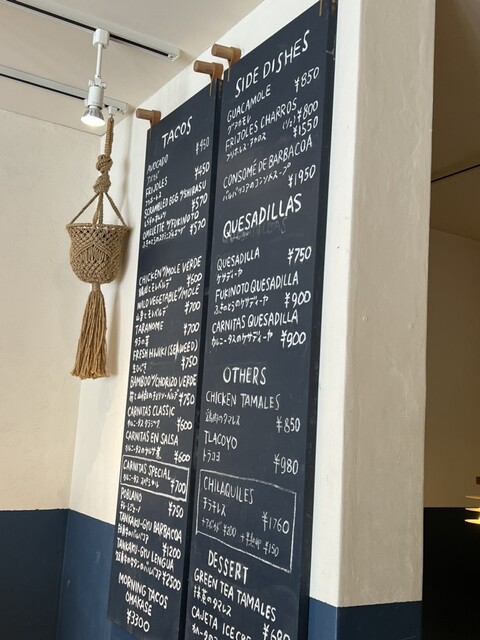 TACOS
AVOCADO ¥450
アボカド
FRIJOLES ¥450
フリホーレス
SCRAMBLED EGG W/SHIRASU ¥570
OMELETTE W/FUKINOTO ¥570
CHICKEN W/MOLE VERDE ¥600
WILD VEGETABLE W/MOLE ¥700
TARANOME ¥700
タラの芽
FRESH HIJIKI (SEAWEED) ¥750
生ひじき
BAMBOO W/CHORIZO VERDE ¥750
CARNITAS CLASSIC ¥600
CARNITAS EN SALSA ¥600
CARNITAS SPECIAL ¥700
カルニータス スペシャル
POBLANO ¥750
TANKAKU-GYU BARBACOA ¥1200
TANKAKU-GYU LENGUA ¥2500
MORNING TACOS
OMAKASE
¥3300
SIDE DISHES
GUACAMOLE ¥850
グアカモレ
FRIJOLES CHARROS (1/2) ¥800
フリホーレス チャロス ¥1550
CONSOMÉ DE BARBACOA
バルバッコアのコンソメスープ ¥1950
QUESADILLAS
QUESADILLA ¥750
ケサディーヤ
FUKINOTO QUESADILLA
ふきのとうのケサディーヤ ¥900
CARNITAS QUESADILLA
カルニータスのケサディーヤ ¥900
OTHERS
CHICKEN TAMALES
鶏肉のタマレス ¥850
TLACOYO
トラコヨ ¥980
CHILAQUILES
チラキレス ¥1760
DESSERT
GREEN TEA TAMALES
抹茶のタマレス
CAJETA ICE CREAM